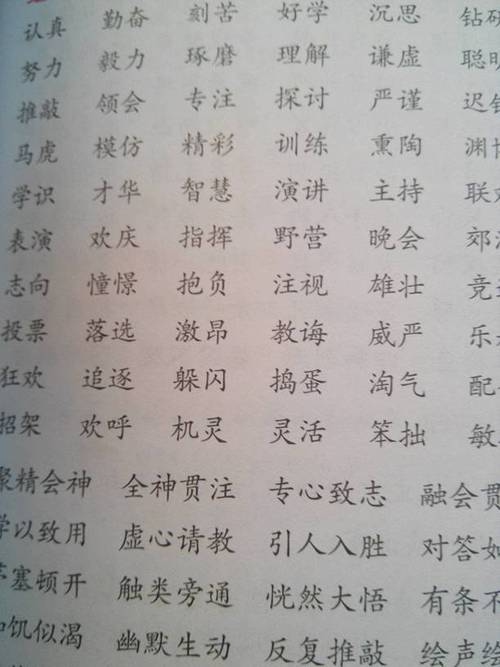 认真 勤奋 刻苦 好学 沉思 钻研
努力 毅力 琢磨 理解 谦虚 聪明
推敲 领会 专注 探讨 严谨 迟
马虎 模仿 精彩 训练 熏陶 渊博
学识 才华 智慧 演讲 主持 联欢
表演 欢庆 指挥 野营 晚会 郊
志向 憧憬 抱负 注视 雄壮 竞
投票 落选 激昂 教诲 威严 乐
狂欢 追逐 躲闪 捣蛋 淘气 配
招架 欢呼 机灵 灵活 笨拙 敏
聚精会神 全神贯注 专心致志 融会贯
学以致用 虚心请教 引人入胜 对答如
茅塞顿开 触类旁通 恍然大悟 有条不
如饥似渴 幽默生动 反复推敲 绘声绘